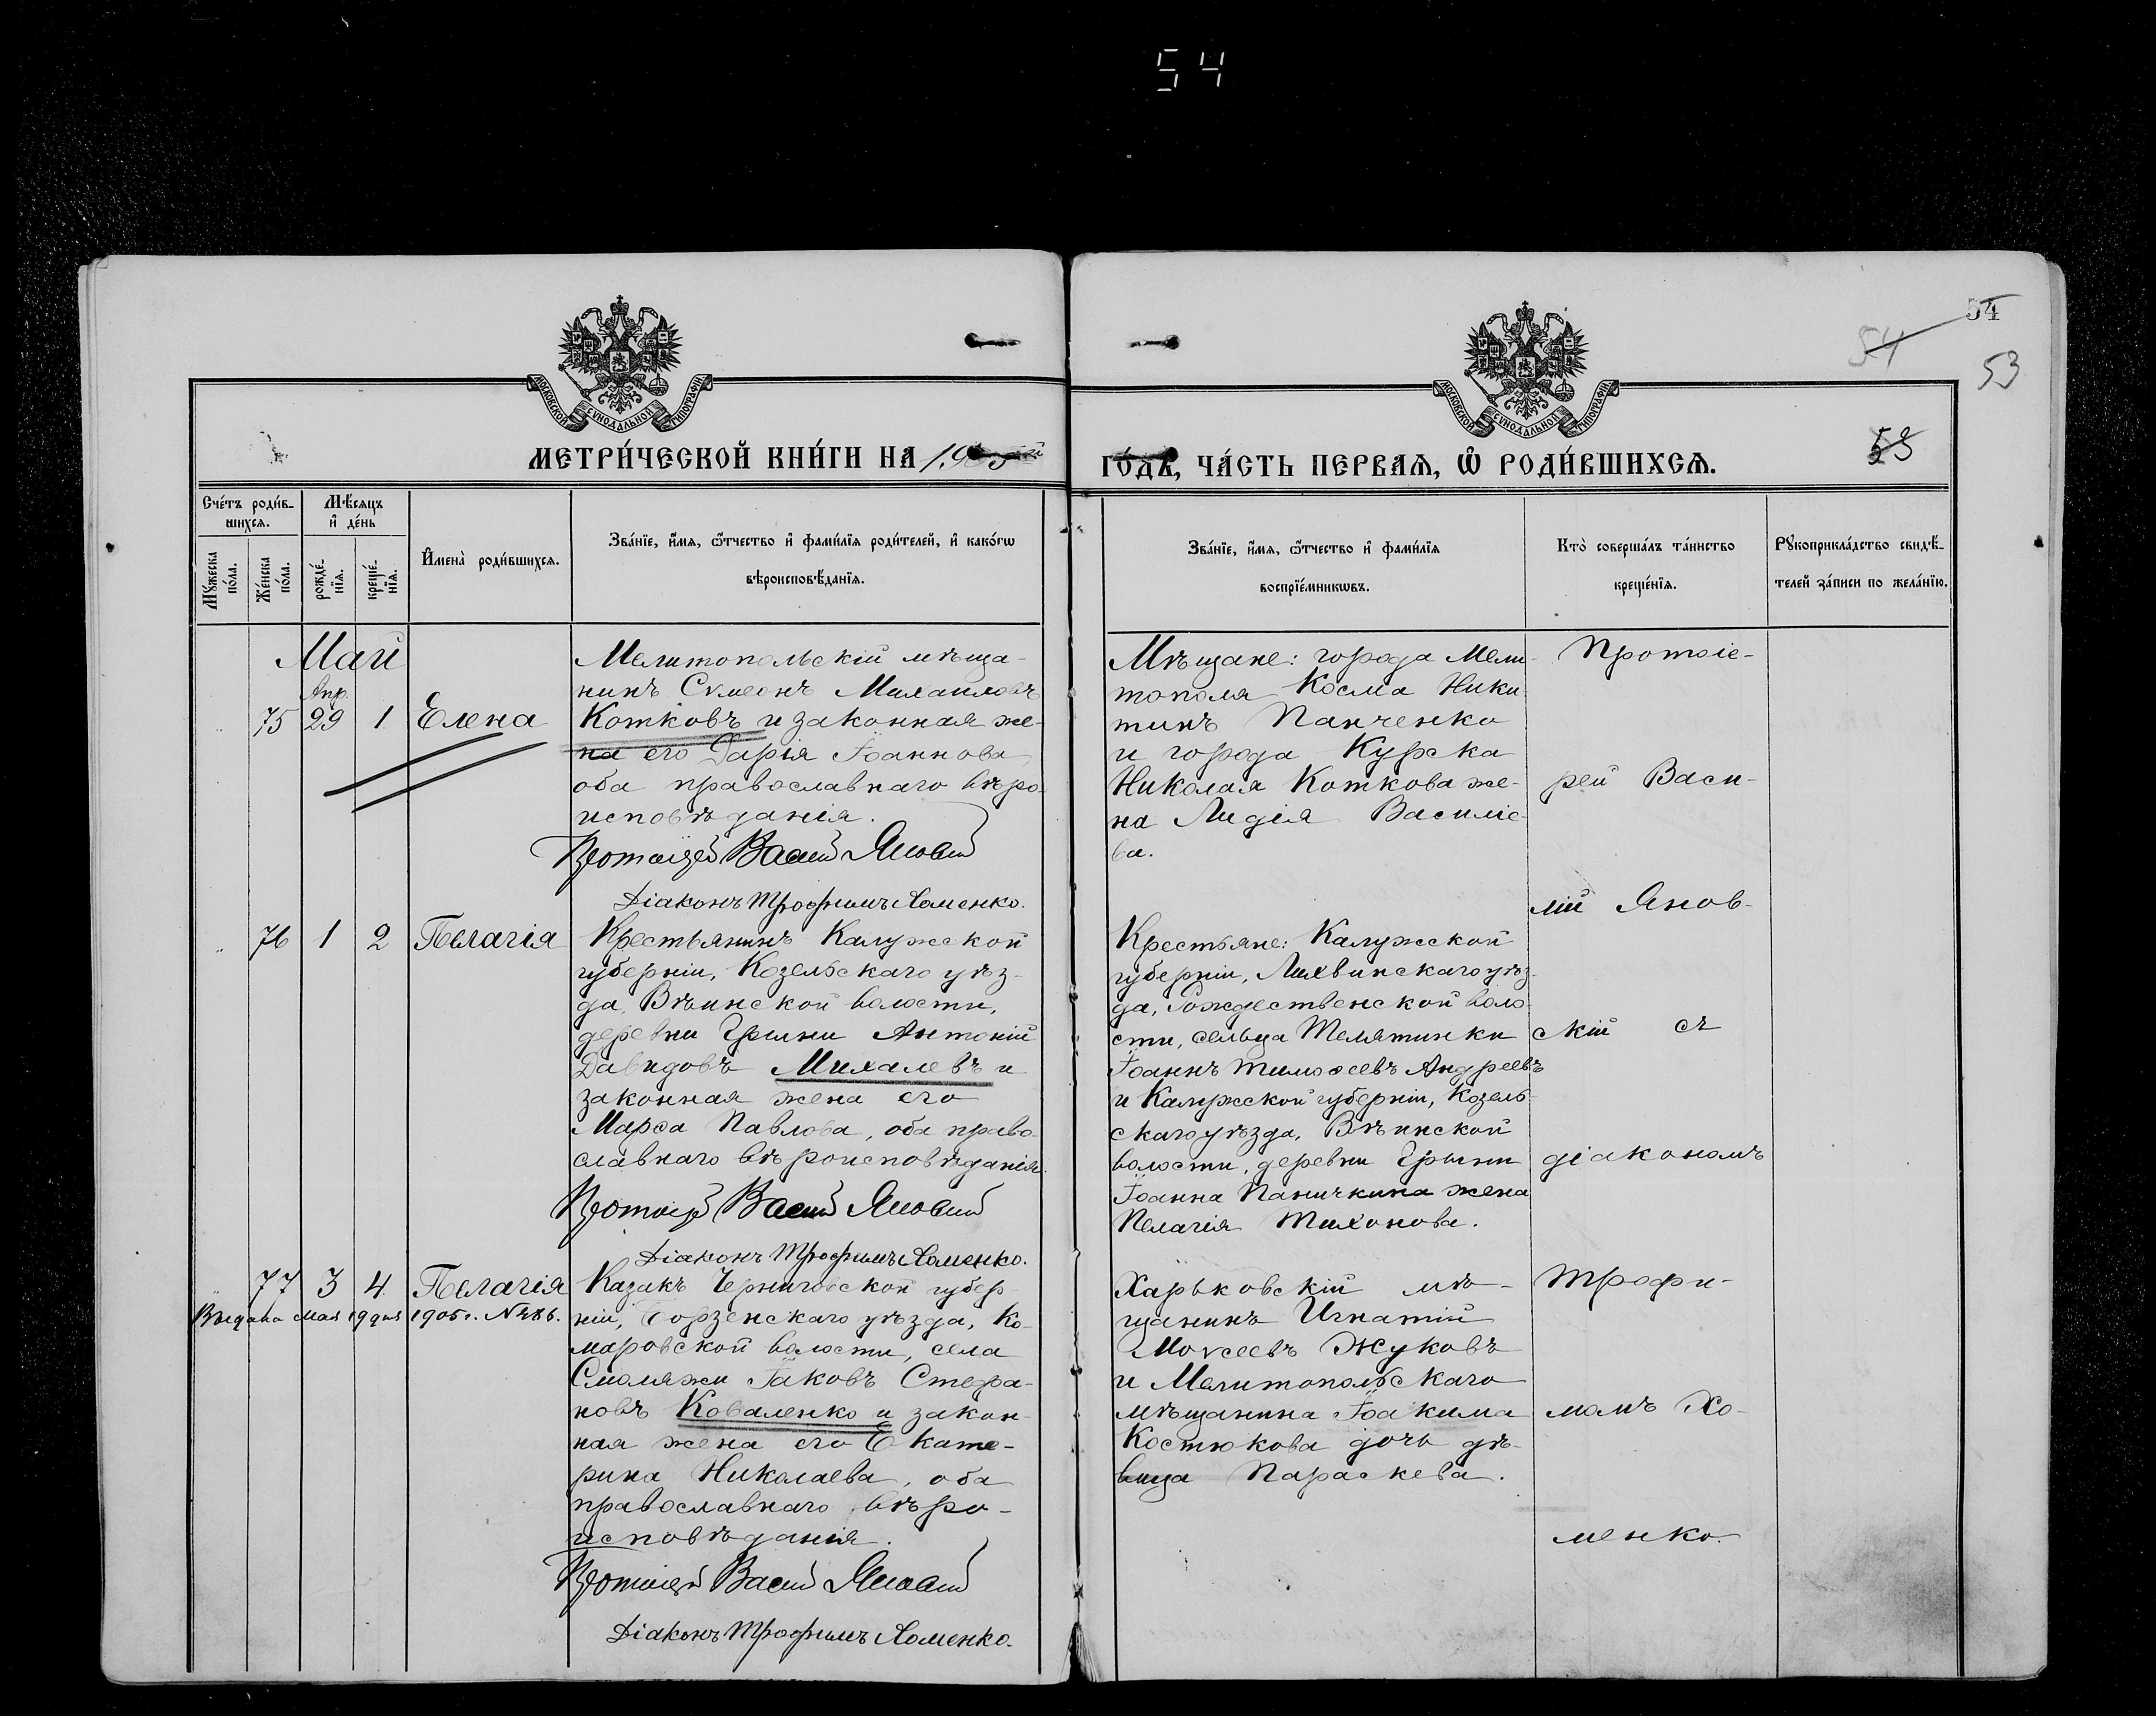 54
54
54
53
53
МОСКОВСКОЙ СѴНОДАЛЬНОЙ ТИПОГРАФІИ
МОСКОВСКОЙ СѴНОДАЛЬНОЙ ТИПОГРАФІИ
МЕТРИ́ЧЕСКОЙ КНИ́ГИ НА 1905й
ГО́ДЪ, ЧА́СТЬ ПЕРВАѦ, Ѡ҆ РОДИ́ВШИХСѦ.
Сче́тъ роди́в-
шихсѧ.
Мꙋ́жеска
по́ла.
Же́нска
по́ла.
Мѣ́сяцъ
и҆ де́нь
рожде́-
нїѧ.
креще́-
нїѧ.
И҆мена̀ роди́вшихсѧ.
Зва́нїе, и҆́мѧ, ѻ҆́тчество и҆ фами́лїѧ роди́телей, и҆ како́гѡ
вѣроисповѣ́данїѧ.
Зва́нїе, и҆́мѧ, ѻ҆́тчество и҆ фами́лїѧ
воспрїе́мникѡвъ.
Кто̀ соверша́лъ та́инство
креще́нїѧ.
Рꙋкоприкла́дство свидѣ́-
телей за́писи по жела́нїю.
Май
Апр.
75 29 1 Елена
Мелитопольскій мѣща-
нинъ Сѵмеонъ Михаиловъ
Котковъ и законная же-
на его Дарія Іоаннова,
оба православнаго вѣро-
исповѣданія.
Протоіерей Василій Яновскій
Діаконъ Трофимъ Хоменко.
Мѣщане: города Мели-
тополя Косма Ники-
тинъ Панченко
и города Курска
Николая Коткова же-
на Лидія Василіе-
ва.
76 1 2 Пелагія
Крестьянинъ Калужской
губерніи, Козельскаго уѣз-
да, Вѣинской волости,
деревни Грыни Антоній
Давидовъ Михалевъ и
законная жена его
Марѳа Павлова, оба право-
славнаго вѣроисповѣданія.
Протоіерей Василій Яновскій
Діаконъ Трофимъ Хоменко.
Крестьяне: Калужской
губерніи, Лихвинскаго уѣз-
да, Рождественской воло-
сти, сельца Телятинки
Іоаннъ Тимоѳеевъ Андреевъ
и Калужской губерніи, Козель-
скаго уѣзда, Вѣинской
волости, деревни Грыни
Іоанна Паничкина жена
Пелагія Тихонова.
77 3 4 Пелагія
Выдана мая 19 дня 1905 г. № 286.
Казакъ Черниговской губер-
ніи, Борзенскаго уѣзда, Ко-
маровской волости, села
Смоляжи Іаковъ Стефа-
новъ Коваленко и закон-
ная жена его Екате-
рина Николаева, оба
православнаго вѣро-
исповѣданія.
Протоіерей Василій Яновскій
Діаконъ Трофимъ Хоменко.
Харьковскій мѣ-
щанинъ Игнатій
Моѵсеевъ Жуковъ
и Мелитопольскаго
мѣщанина Іоакима
Костюкова дочь дѣ-
вица Параскева.
Протоіе-
рей Васи-
лій Янов-
скій съ
діакономъ
Трофи-
момъ Хо-
менко.